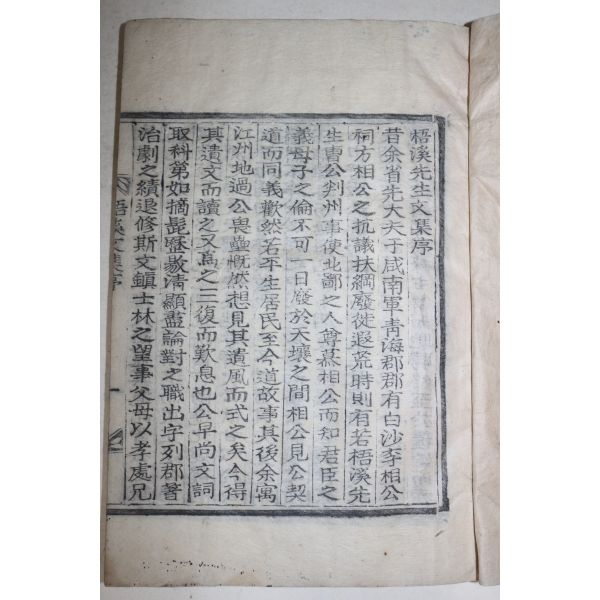 梧溪先生文集序
昔余省先大夫于咸南軍靑海郡郡有白沙李相公
祠方相公之抗議扶綱廢徙遐荒時則有若梧溪先
生曺公判州事使北鄙之人尊慕相公而知君臣之
義母子之倫不可一日廢於天壤之間相公見公契
道而同義歡然若平生居民至今道故事其後余寓
江州地過公輿壘慨然想見其遺風而式之矣今得
其遺文而讀之又爲之三復而歎息也公早尚文詞
取科第如摘髭歷敭淸顯盡論對之職出宰列郡著
治劇之績退修斯文鎭士林之望事父母以孝處兄
梧溪文集序
一